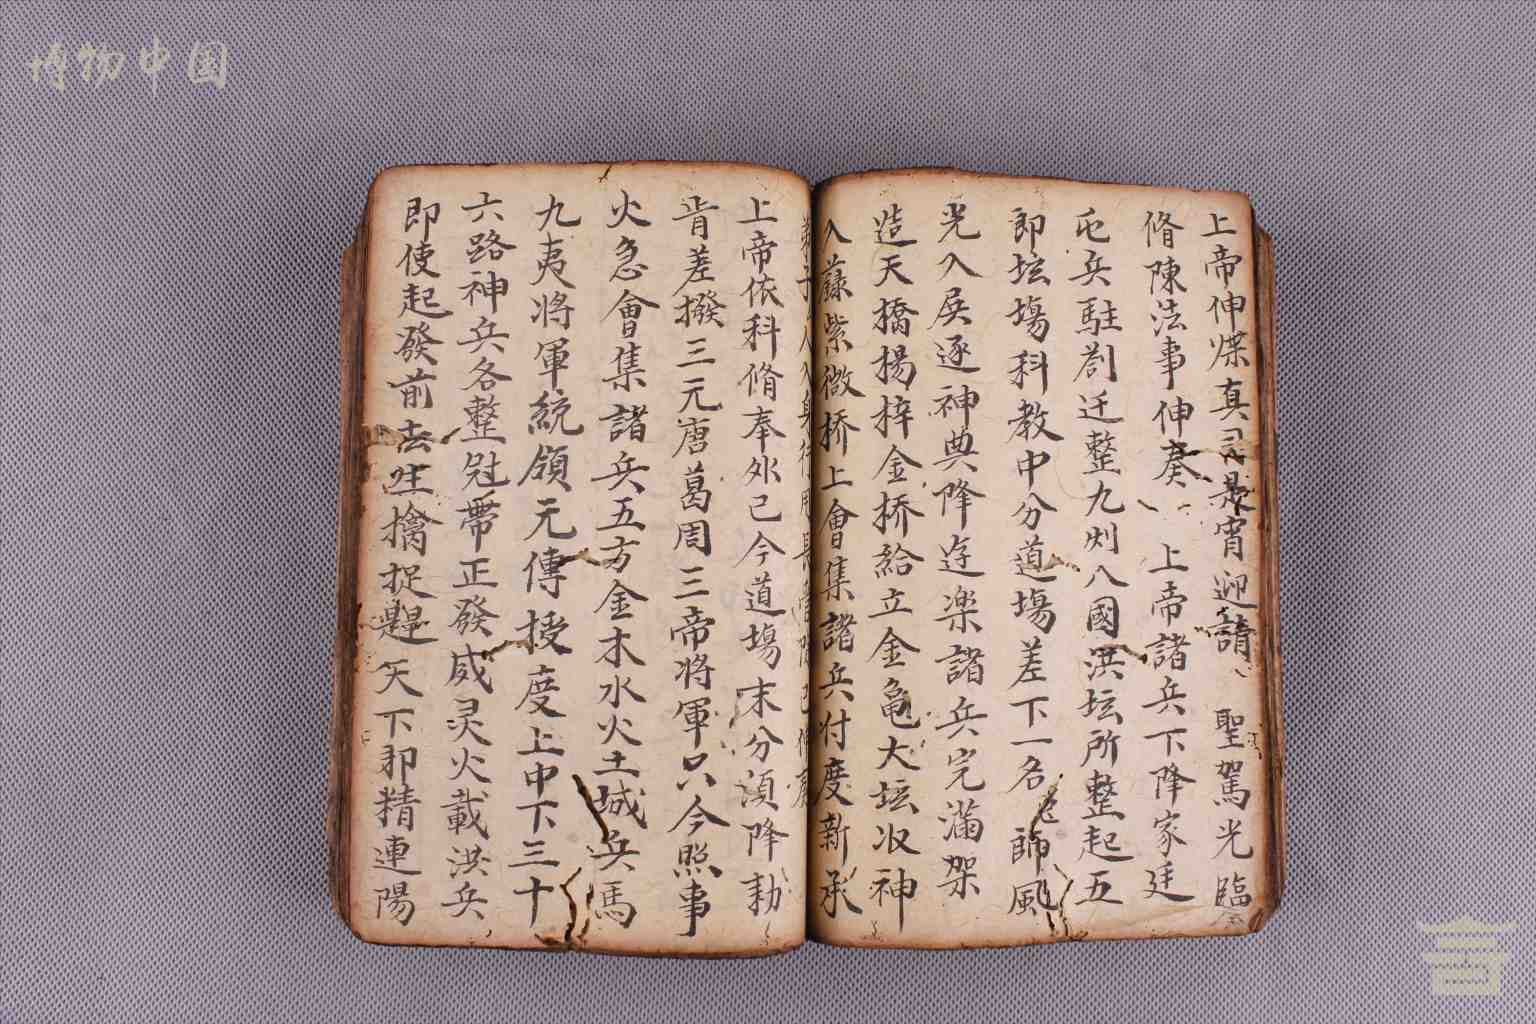 博物中国
上帝伸媒真司是宵迎請 聖駕光臨
脩陳法事伸奏 上帝諸兵下降家廷
屯兵駐劄迁整九州八國洪坛所整起五
即坛塲科教中分道塲差下一名 師風
光入展逐神典降迓楽諸兵完滿架
造天橋揚梓金桥給立金亀大坛收神
入籙紫微桥上會集諸兵付度新承
弟子入
上帝依科脩奉外已今道塲末分湏降勅
肯差撥三元唐葛周三帝将軍只今照事
火急會集諸兵五方金木水火土城兵馬
九夷将軍統領元傳授度上中下三十
六路神兵各整冠帶正發威灵火載洪兵
即使起發前去生擒捉 天下邪精連陽